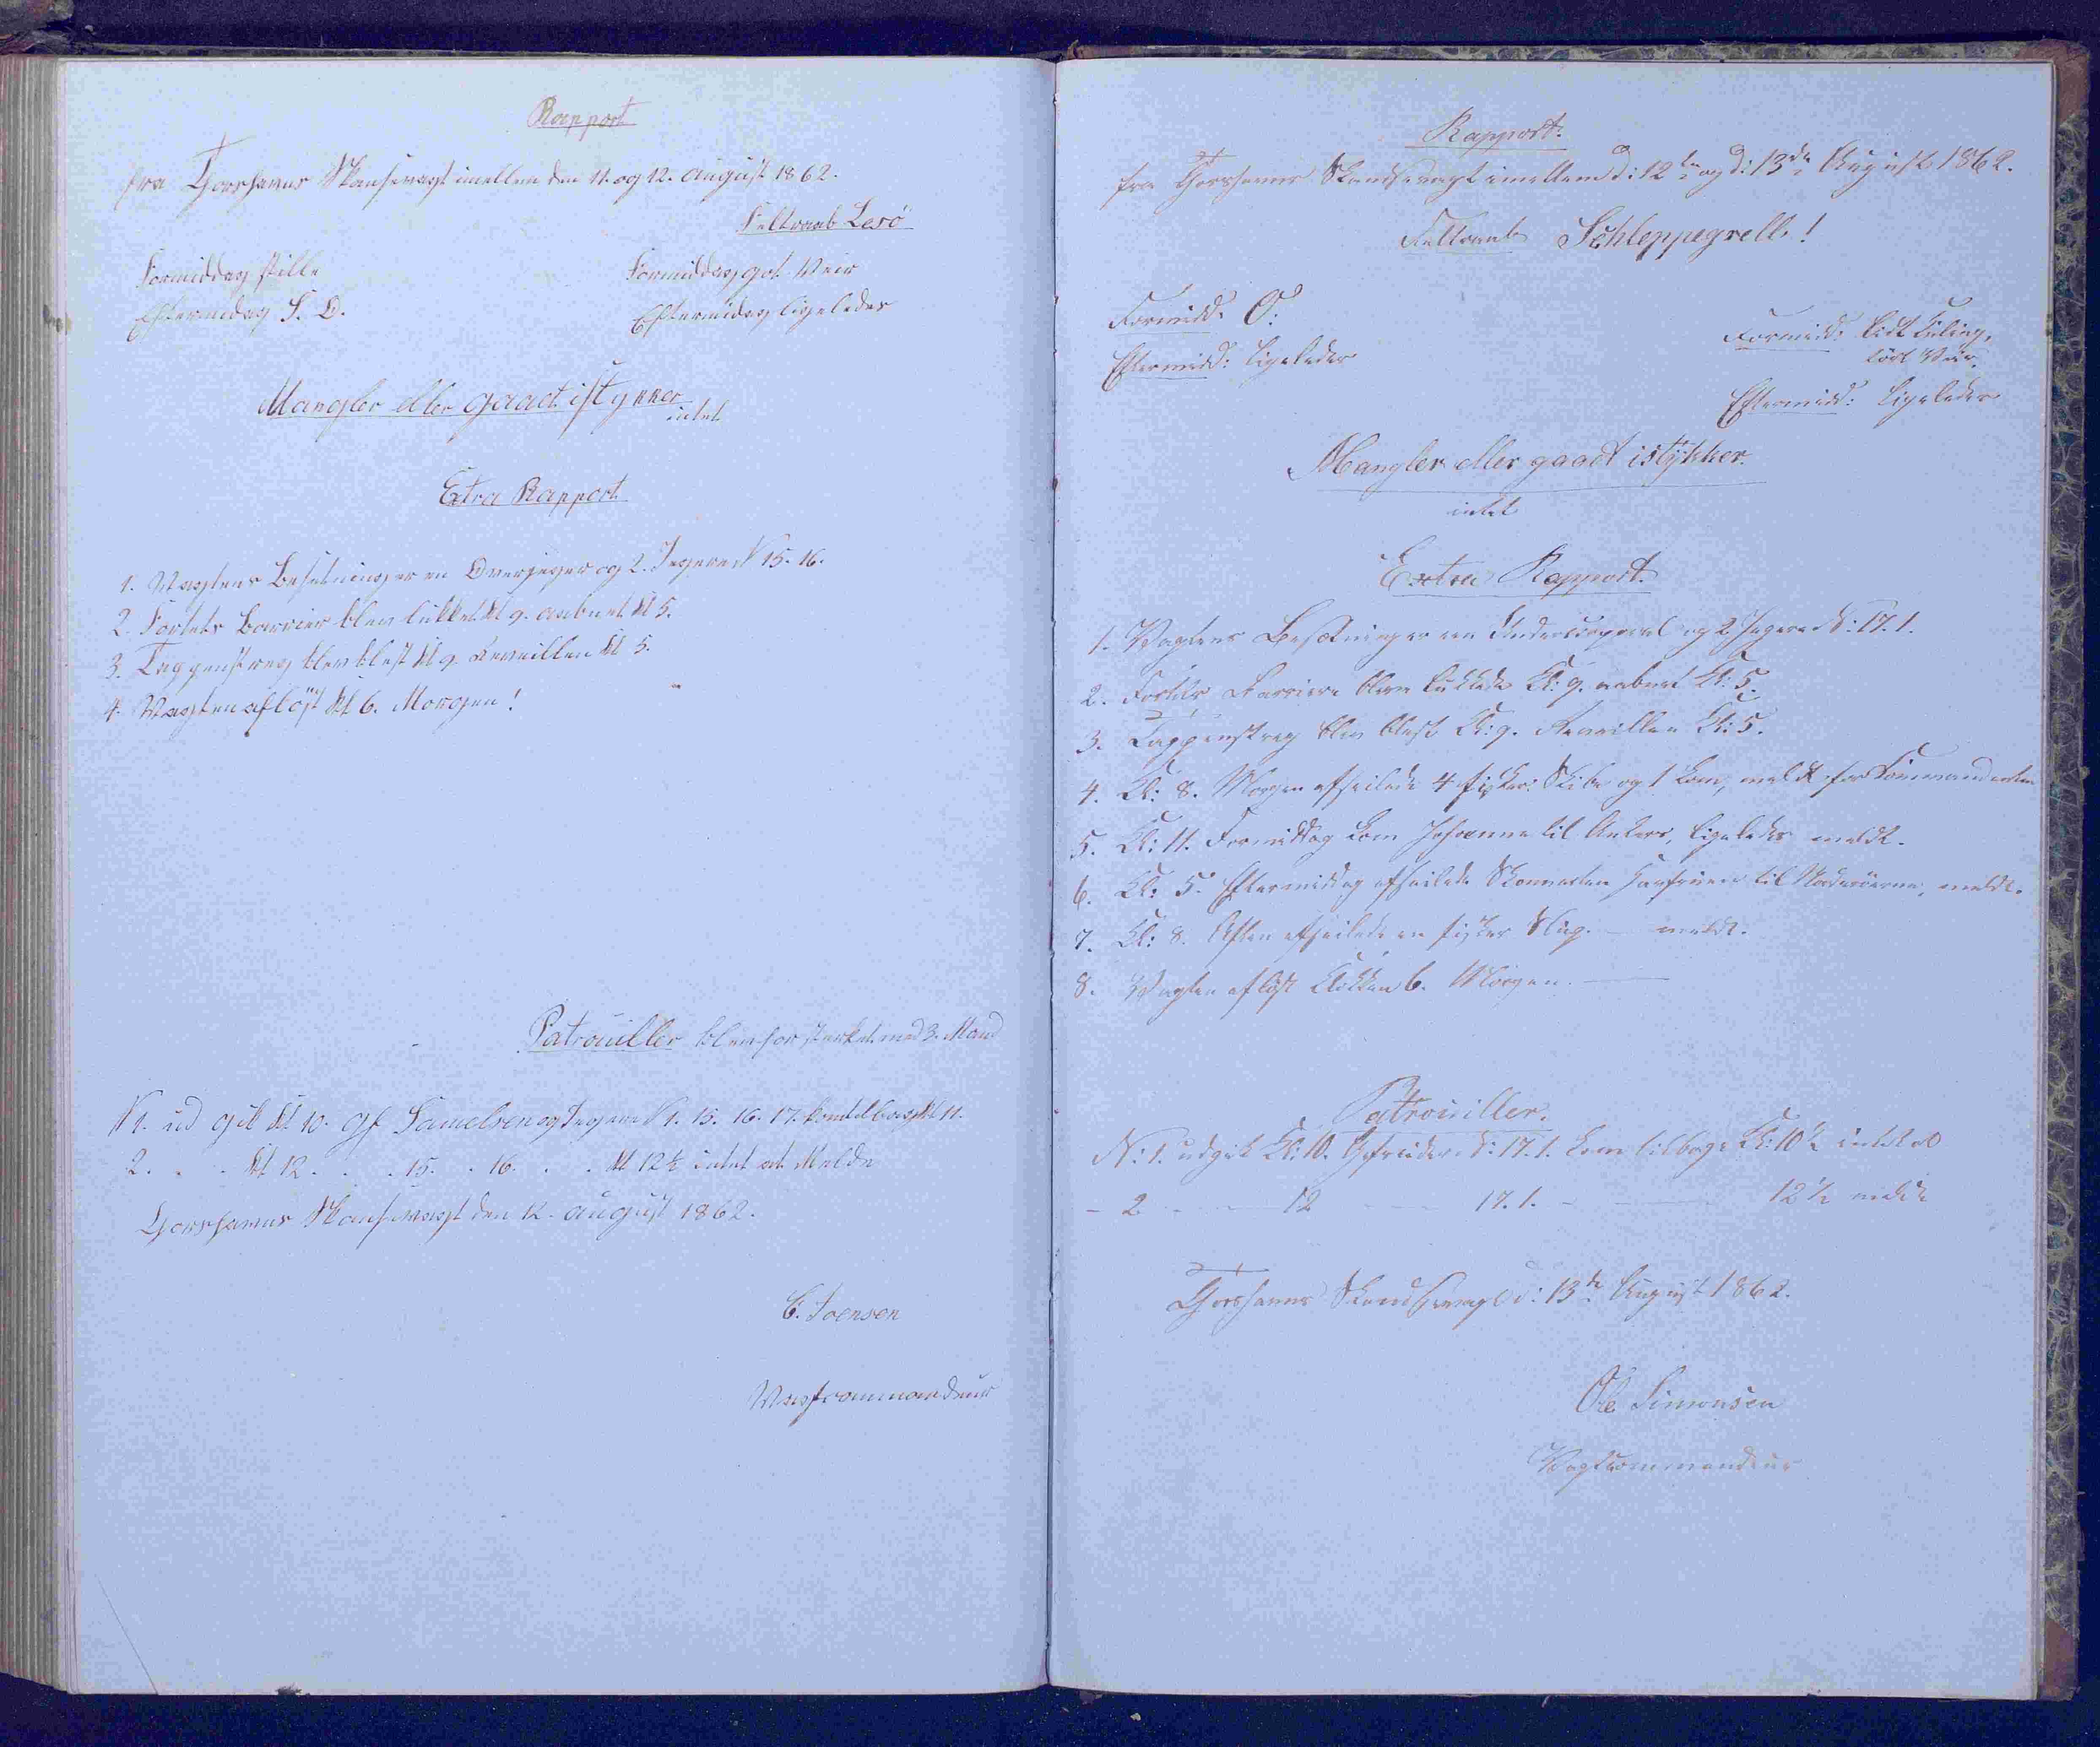 Rapport
fra Thorshavns Skansevagt imellem den 11. og 12. August 1862.
Feltraab Lesö
Formiddag stille
Eftermidag S. O.
Formiddag got Veir
Eftermidag ligeledes
Mangler eller gaaet istykker
intet
Extra Rapport
1. Vagtens Besetning er en Overjeger og 2. Jegere N 15. 16.
2. Fortets Barrier blev lukket Kl 9. aabnet Kl 5.
3. Tappenstreg blev blest Kl 9. Reveillen Kl 5.
4. Vagten aflöst Kl 6. Morgen!
Patrouiller blev forsterket med 3. Mand
N 1. ud gik Kl 10. Gf. Samelsen og Jegere N 1. 15. 16. 17. kom tilbage Kl 11.
2. . . Kl 12. . . 15. . 16. . . Kl 12½ intet at Melde
Thorshavns Skansevagt den 12. August 1862.
C. Joensen
Vagtcommandeur
Rapport.
fra Thorshavns Skandsevagt imellem d: 12te og d: 13de August 1862.
Feltraab Schleppegrell!
Formidd: O:
Eftermidd: ligeledes
Formidd: lidt Kuling,
tört Veir.
Eftermidd: ligeledes
Mangler eller gaaet istykker.
intet
Extra Rapport.
1. Vagtens Besætning er en Undercorporal og 2 Jegere N: 17. 1.
2. Fortets Barriere blev lukkede Kl: 9. aabnet Kl: 5.
3. Tappenstreg blev blest Kl: 9. Reveillen Kl: 5.
4. Kl: 8. Morgen afseilede 4 fisker Skibe og 1 kom, meldt for Kommandanten
5. Kl: 11. Formiddag kom Johanne til Ankers, ligeledes meldt.
6. Kl: 5. Eftermiddag afseilede Skonnerten Havfruen til Nordeöerne, meldt.
7. Kl: 8. Aften afseilede en fisker Slup. — meldt.
8. Vagten aflöst Klokken 6. Morgen. —
Patrouiller.
N: 1. udgik Kl: 10. Gefreider N: 17. 1. kom tilbage Kl: 10½ intet at
- 2 - - 12 - - 17. 1. - — 12½ melde
Thorshavns Skandsevagt d: 13de August 1862.
Ole Simonsen
Vagtcommandeur